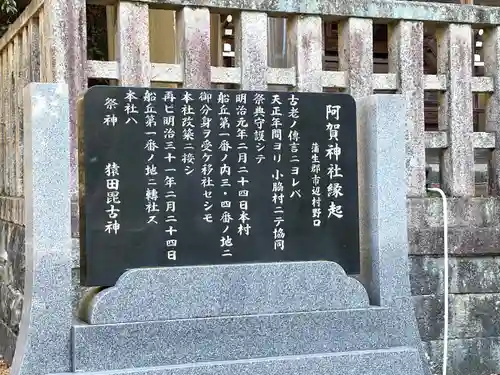 阿賀神社縁起
蒲生郡市辺村野口
古老ノ傳言ニヨレバ
天正年間ヨリ小脇村ニテ協同
祭典守護シテ
明治元年二月二十四日本村
船丘第一番ノ内三・四番ノ地ニ
御分身ヲ受ケ移社セシモ
本社改築ニ接シ
再ビ明治三十一年二月二十四日
船丘第一番ノ地ニ轉社ス
本社ハ
祭神 猿田毘古神